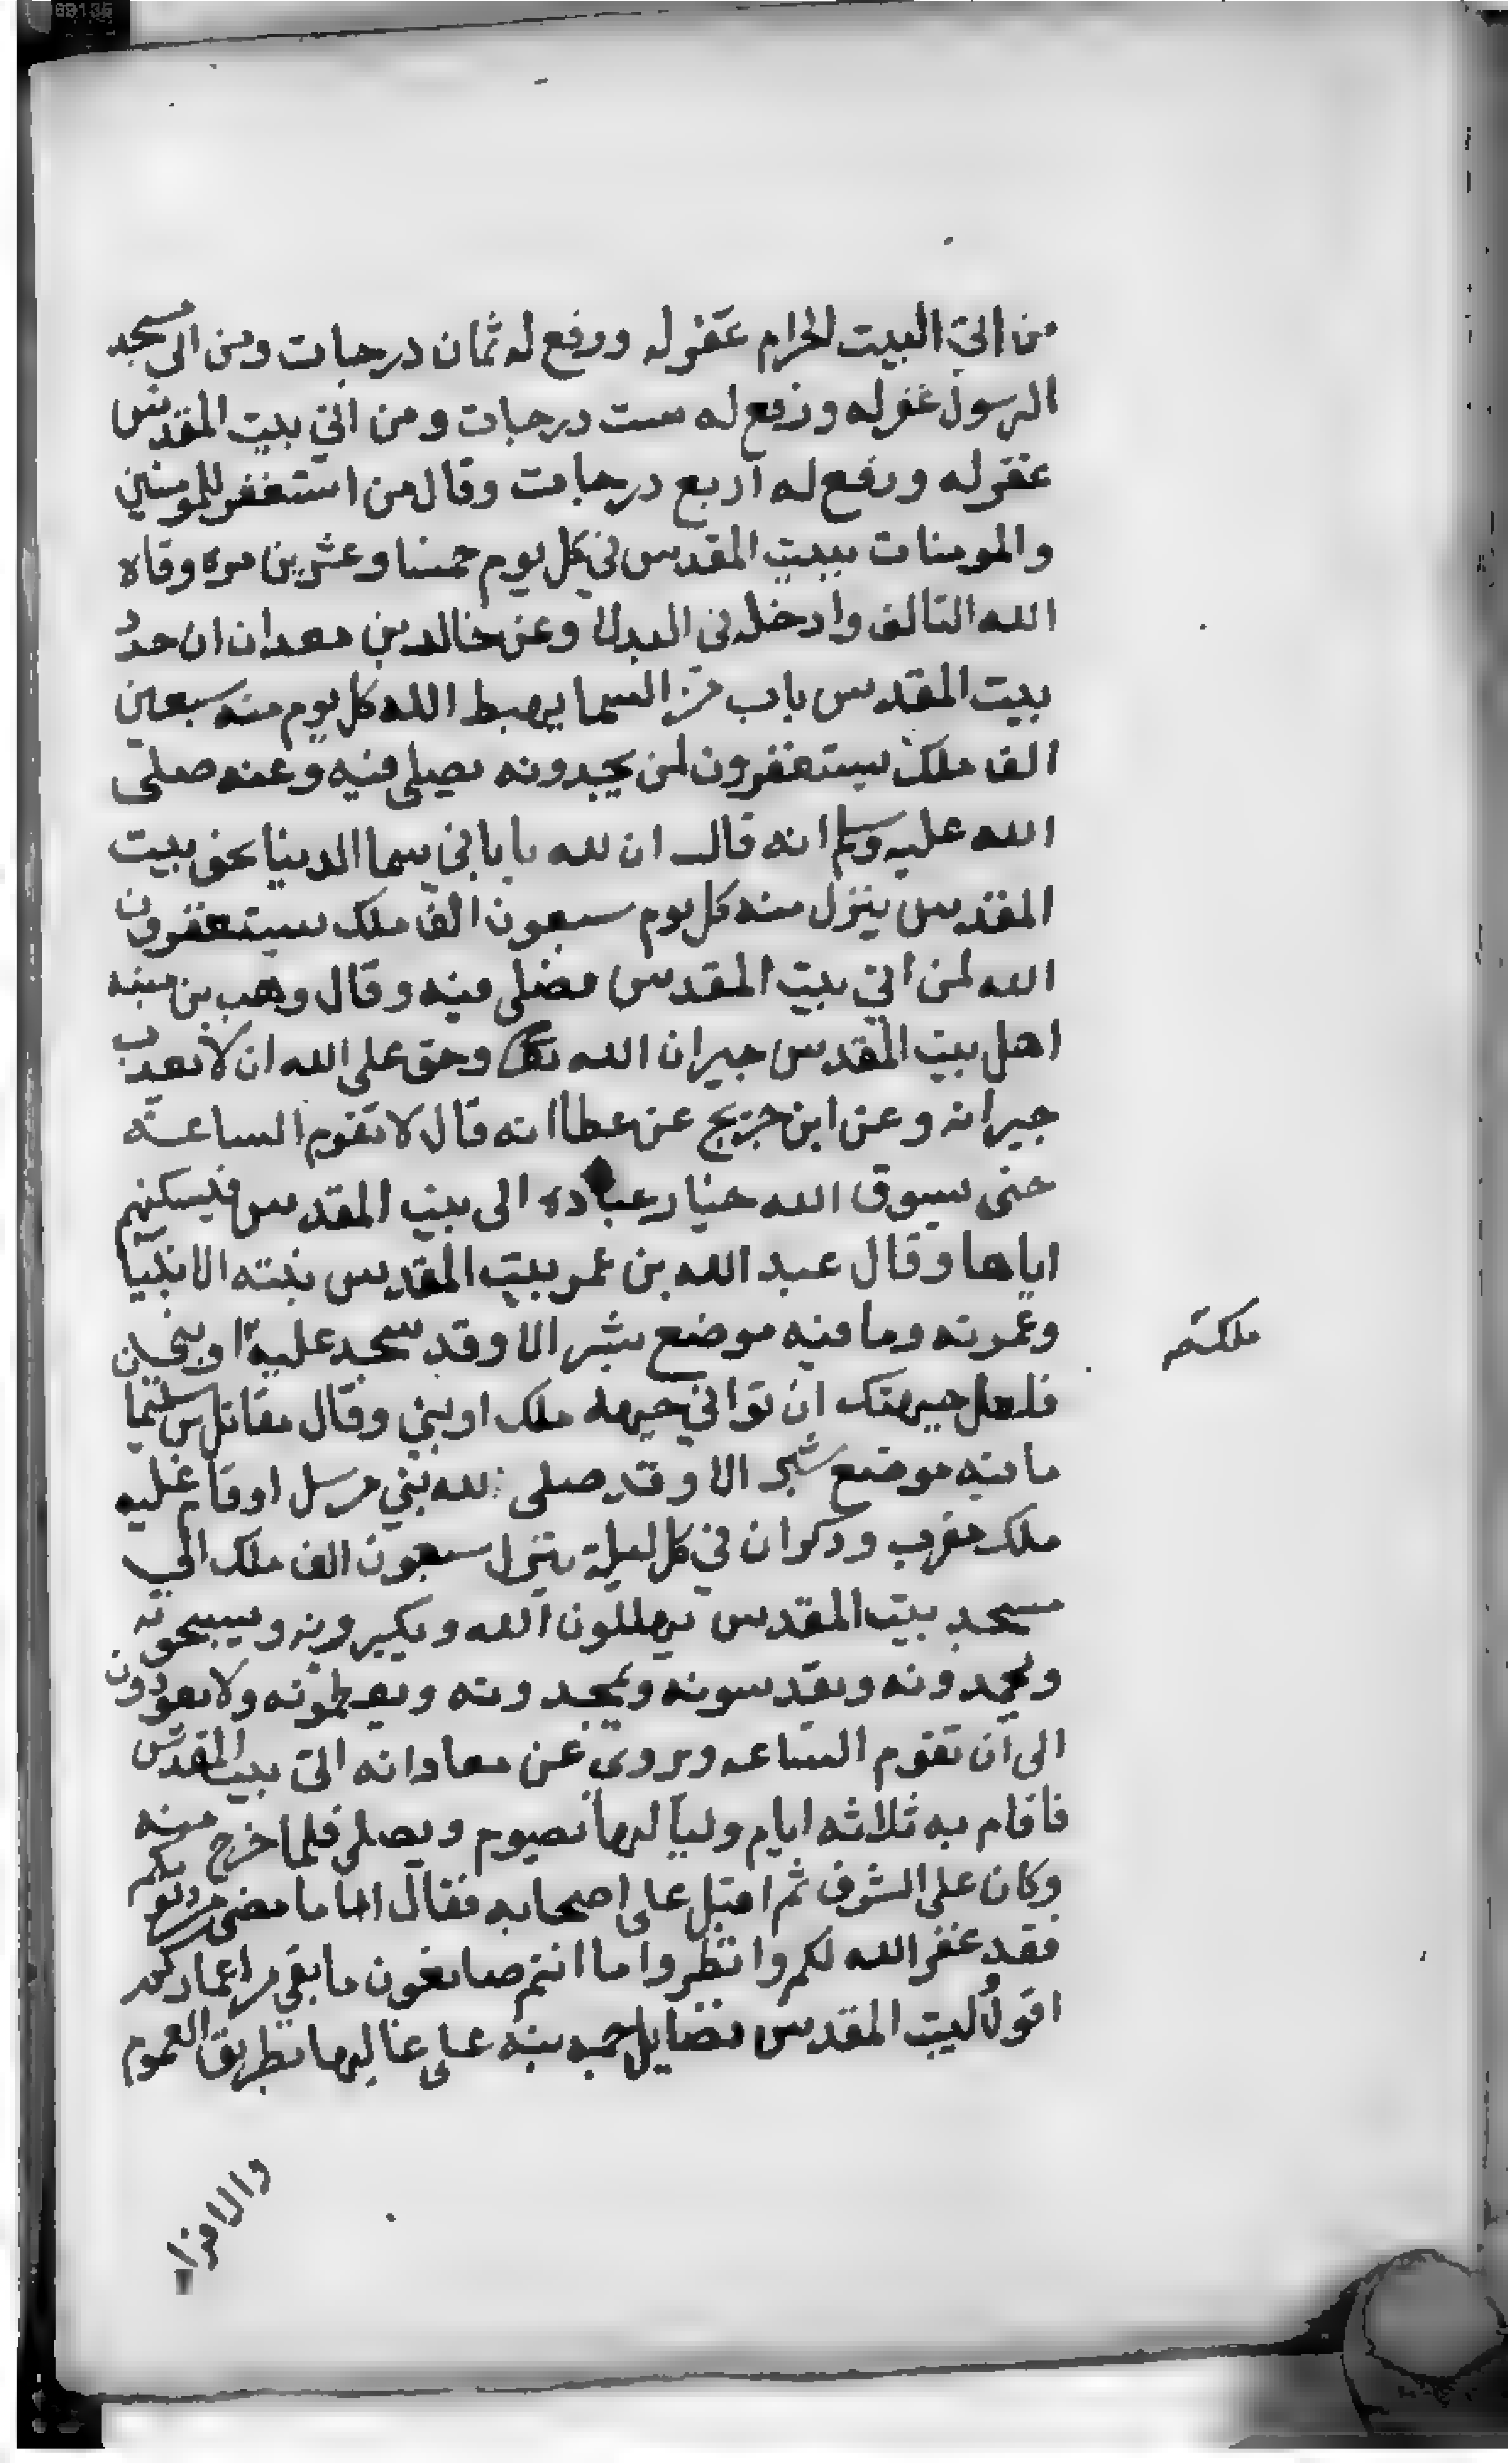 من اتي البيت الحرام غفر له ورفع له ثمان درجات ومن اتى مسجد
الرسول غفر له ورفع له ست درجات ومن اتي بيت المقدس
غفر له ورفع له اربع درجات وقال من استغفر للمومنين
والمومنات ببيت المقدس في كل يوم خمسا وعشرين مره وقاه
الله التالف وادخله في البدلا وعن خالد بن معدان ان حد
بيت المقدس باب من السما يهبط الله كل يوم منه سبعين
الف ملك يستغفرون لمن يجدونه يصلي فيه وعنه صلى
الله عليه وسلم انه قال ان لله بابا في سما الدنيا نحو بيت
المقدس ينزل منه كل يوم سبعون الف ملك يستغفرون
الله لمن اتي بيت المقدس فصلى فيه وقال وهب بن منبه
اهل بيت المقدس جيران الله تعالى وحق على الله ان لا يعذب
جيرانه وعن ابن جريج عن عطا انه قال لا تقوم الساعة
حتى يسوق الله خيار عباده الى بيت المقدس فيسكنهم
اياها وقال عبد الله بن عمر بيت المقدس بنته الانبيا
وعمرته وما فيه موضع شبر الا وقد سجد عليه
ملك
فلعل جبهتك ان توافي جبهة ملك او نبي وقال مقاتل بن سليمان
ما فيه موضع شبر الا وقد صلى لله نبي مرسل او قام عليه
ملك مقرب وذكر ان في كل ليلة ينزل سبعون الف ملك الي
مسجد بيت المقدس يهللون الله ويكبرونه ويسبحونه
ويحمدونه ويقدسونه ويمجدونه ويعظمونه ولا يعودون
الى ان تقوم الساعه ويروى عن معاذ انه اتى بيت المقدس
فاقام به ثلاثه ايام ولياليها يصوم ويصلي فلما خرج منه
وكان على الشرف ثم اقبل على اصحابه فقال اما ما مضى من ذنوبكم
فقد غفر الله لكم وانظروا ما انتم صانعون ما بقي من اعماركم
اقول لبيت المقدس فضايل جمه ننبه على غالبها بطريق العموم